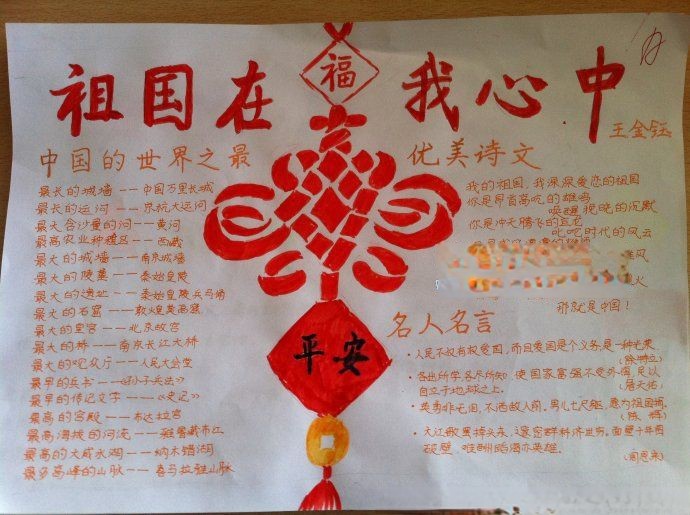 祖国在我心中
福
王金钰
中国的世界之最
最长的城墙——中国万里长城
最长的运河——京杭大运河
最大含沙量的河——黄河
最高农业种植区——西藏
最大的城墙——南京城墙
最大的陵墓——秦始皇陵
最大的遗址——秦始皇陵兵马俑
最大的石窟——敦煌莫高窟
最大的皇宫——北京故宫
最大的桥——南京长江大桥
最大的观众厅——人民大会堂
最早的兵书——《孙子兵法》
最早的传记文学——《史记》
最高的宫殿——布达拉宫
最高海拔的河流——雅鲁藏布江
最高的大咸水湖——纳木错湖
最多高峰的山脉——喜马拉雅山脉
平安
优美诗文
我的祖国，我深深爱恋的祖国
你是昂首高吭的雄鸡
唤醒拂晓的沉默
你是冲天腾飞的巨龙
叱咤时代的风云
风
火
那就是中国！
名人名言
·人民不仅有权爱国，而且爱国是个义务，是一种光荣。
(徐特立)
·各出所学，各尽所知，使国家富强不受外侮，足以
自立于地球之上。
(詹天佑)
·英勇非无泪，不洒敌人前。男儿七尺躯，愿为祖国捐。
(陈辉)
·大江歌罢掉头东，邃密群科济世穷。面壁十年图
破壁，难酬蹈海亦英雄。
(周恩来)